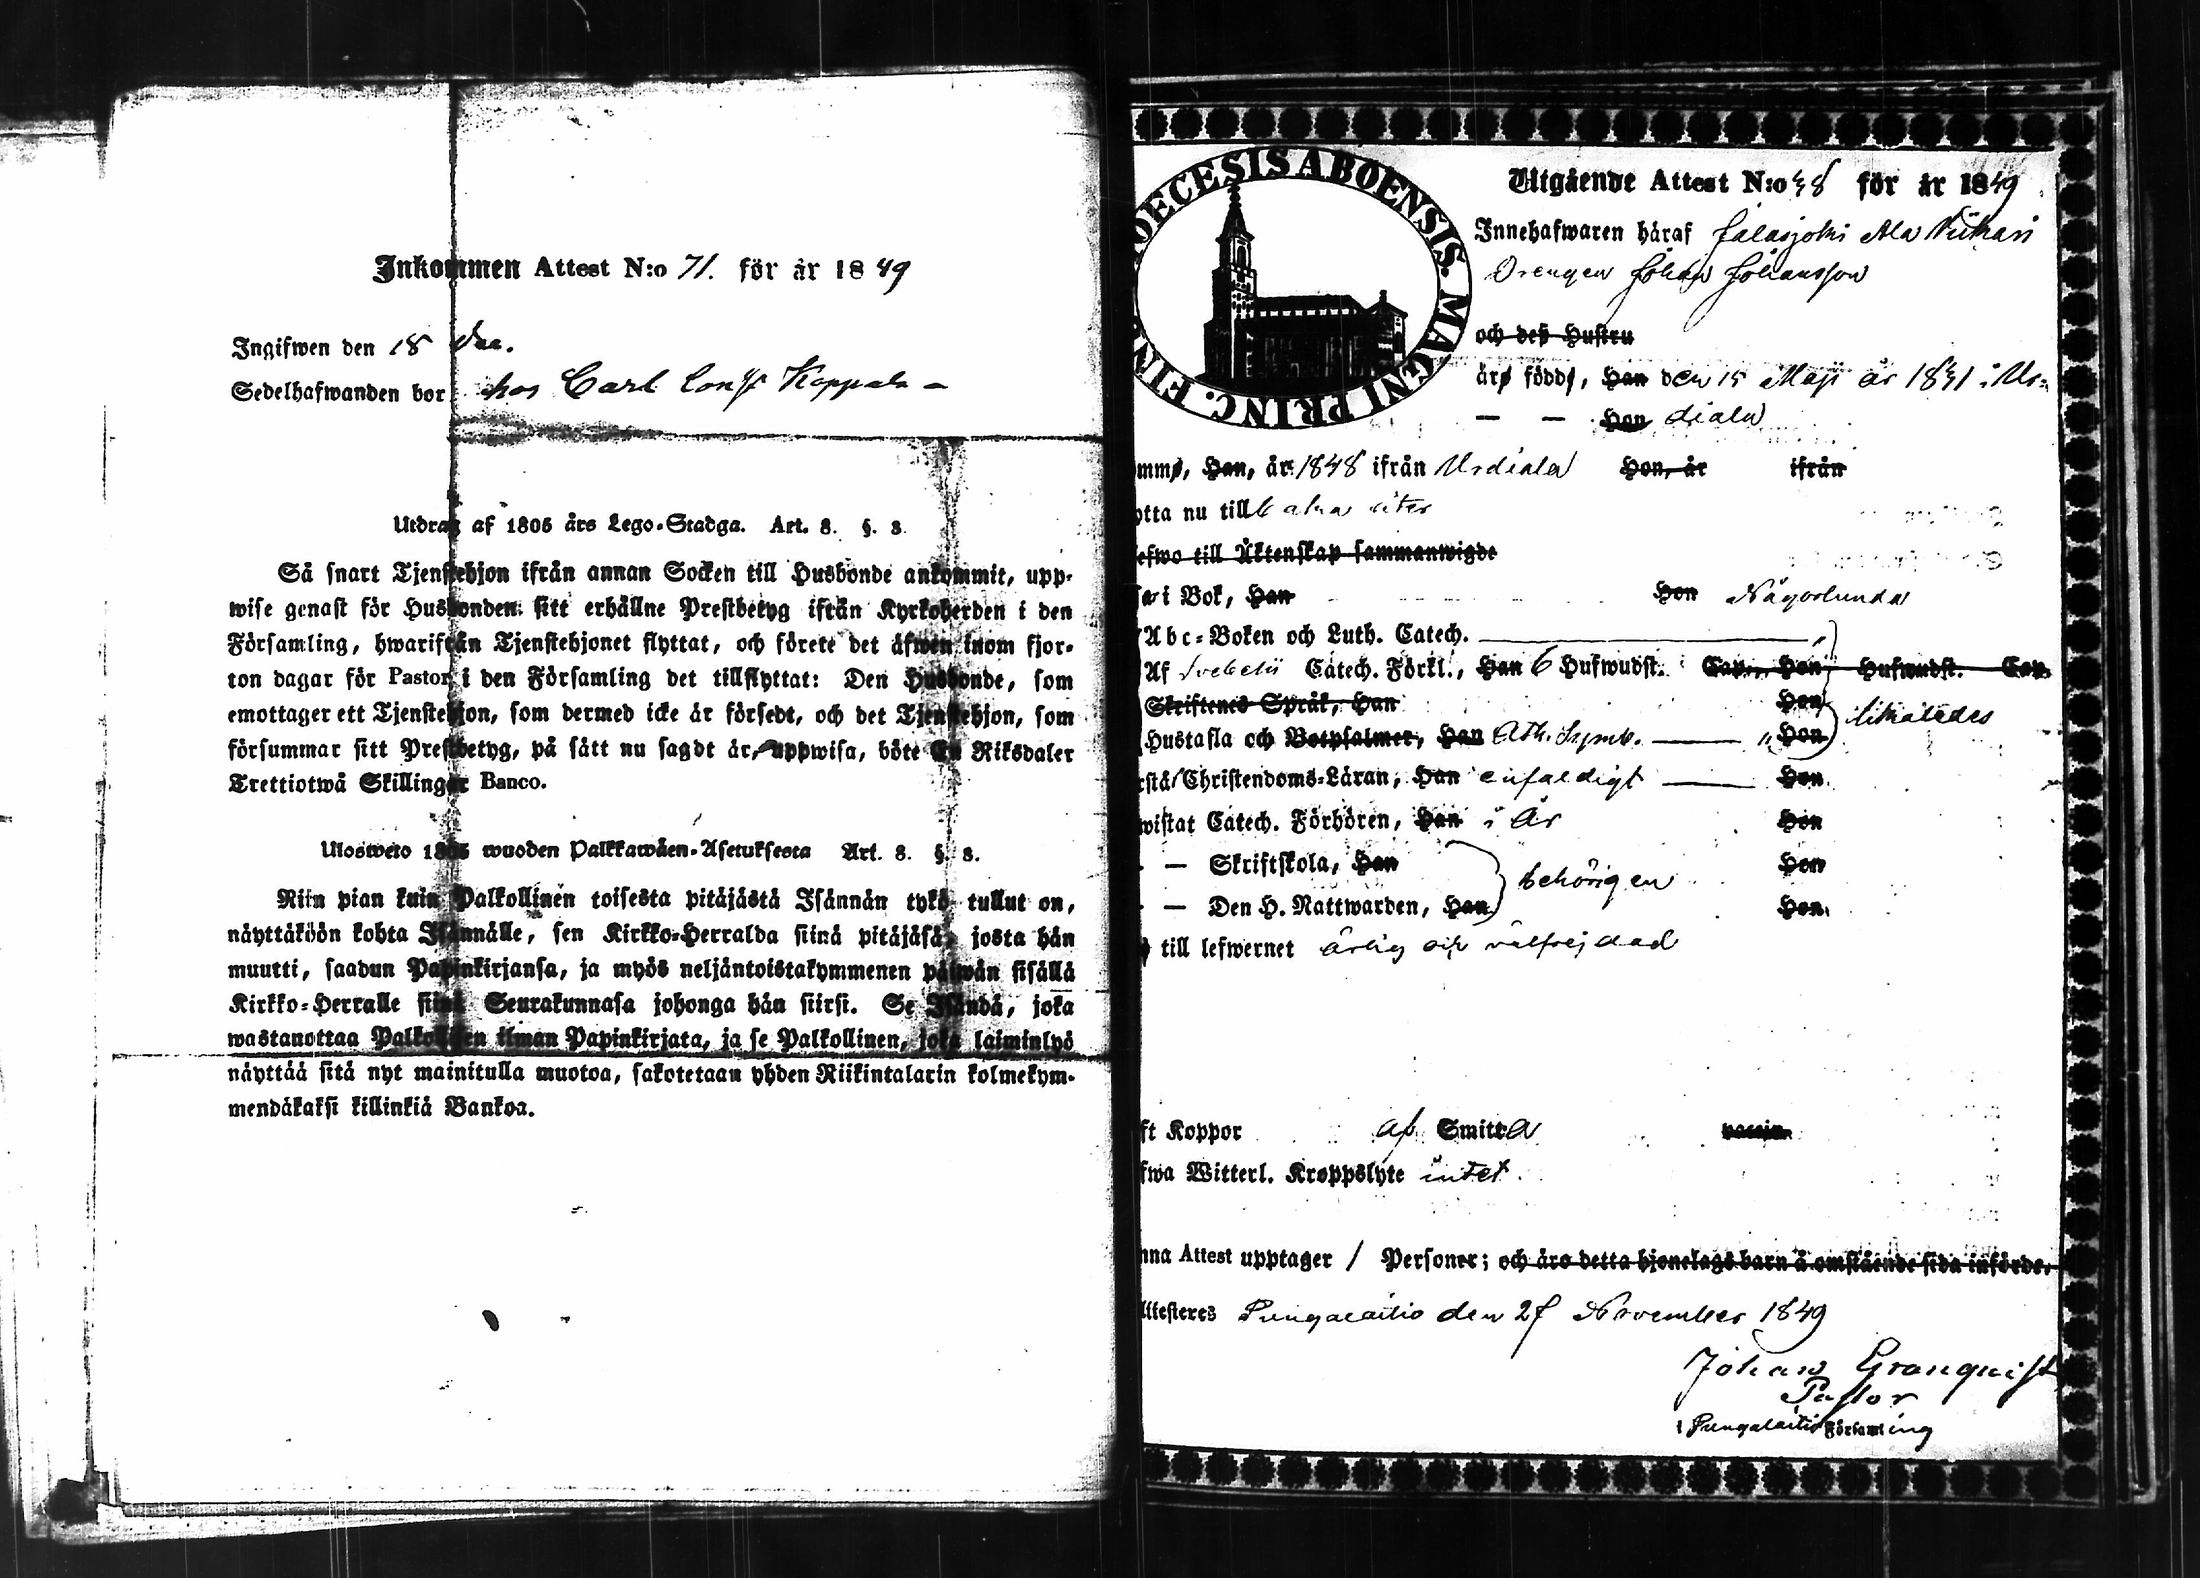 Inkommen Attest N:o 71. för år 1849
Ingifwen den 18 Dec.
Sedelhafwanden bor hos Carl Koppala –
Utdrag af 1805 års Lego-Stadga. Art. 8. §. 8.
Så snart Tjenstehjon ifrån annan Socken till Husbonde ankommit, upp-
wise genast för Husbonden sitt erhållne Prestbetyg ifrån Kyrkoherden i den
Församling, hwarifrån Tjenstehjonet flyttat, och förete det äfwen inom fjor-
ton dagar för Pastor i den Församling det tillflyttat: Den Husbonde, som
emottager ett Tjenstehjon, som dermed icke är försedt, och det Tjenstehjon, som
försummar sitt Prestbetyg, på sätt nu sagdt är, uppwisa, böte En Riksdaler
Trettiotwå Skillingar Banco.
Ulosweto 1805 wuoden Palkkawäen-Asetuksesta Art. 8. §. 8.
Niin pian kuin Palkollinen toisesta pitäjästä Isännän tykö tullut on,
näyttäköön kohta Isännälle, sen Kirkko-Herralda siinä pitäjäsä, josta hän
muutti, saadun Papinkirjansa, ja myös neljäntoistakymmenen päiwän sisällä
Kirkko-Herralle siinä Seurakunnasa johonga hän siirsi. Se Isändä, joka
wastanottaa Palkollisen ilman Papinkirjata, ja se Palkollinen, joka laiminlyö
näyttää sitä nyt mainitulla muotoa, sakotetaan yhden Riikintalarin kolmekym-
mendäkaksi killinkiä Bankoa.
OECESIS ABOENSIS. MAGNI PRINC. FIN
Utgående Attest N:o 48 för år 1849
Innehafwaren häraf Jalasjoki Ala Nikkari
Drengen Johan Johansson
och deß Hustru
äro födde, Han den 15 Maji år 1831 i Ur-
— — Hon diala
omme, Han, år 1848 ifrån Urdiala Hon, år ifrån
otta nu till åter
efwo till Äktenskap sammanwigde
a i Bok, Han Hon Någorlunda
Abc-Boken och Luth. Catech. "
Af Svebelii Catech. Förkl., Han 6 Hufwudst. Cap., Hon Hufwudst. Cap.
Skriftenes Språk, Han Hon likaledes
Hustafla och Botpsalmer, Han Ath. Symb. " Hon
rstå Christendoms-Läran, Han enfaldigt Hon
wistat Catech. Förhören, Han i år Hon
— Skriftskola, Han behörigen Hon
— Den H. Nattwarden, Han Hon
till lefwernet ärlig och välfrejdad
ft Koppor af Smitta vaccin.
fwa Witterl. Kroppslyte intet
nna Attest upptager 1 Personer; och äro detta hjonelags barn å omstående sida införde.
Attesteres Pungalaitio den 27 November 1849
Johan Granquist
Pastor
i Pungalaitio Församling